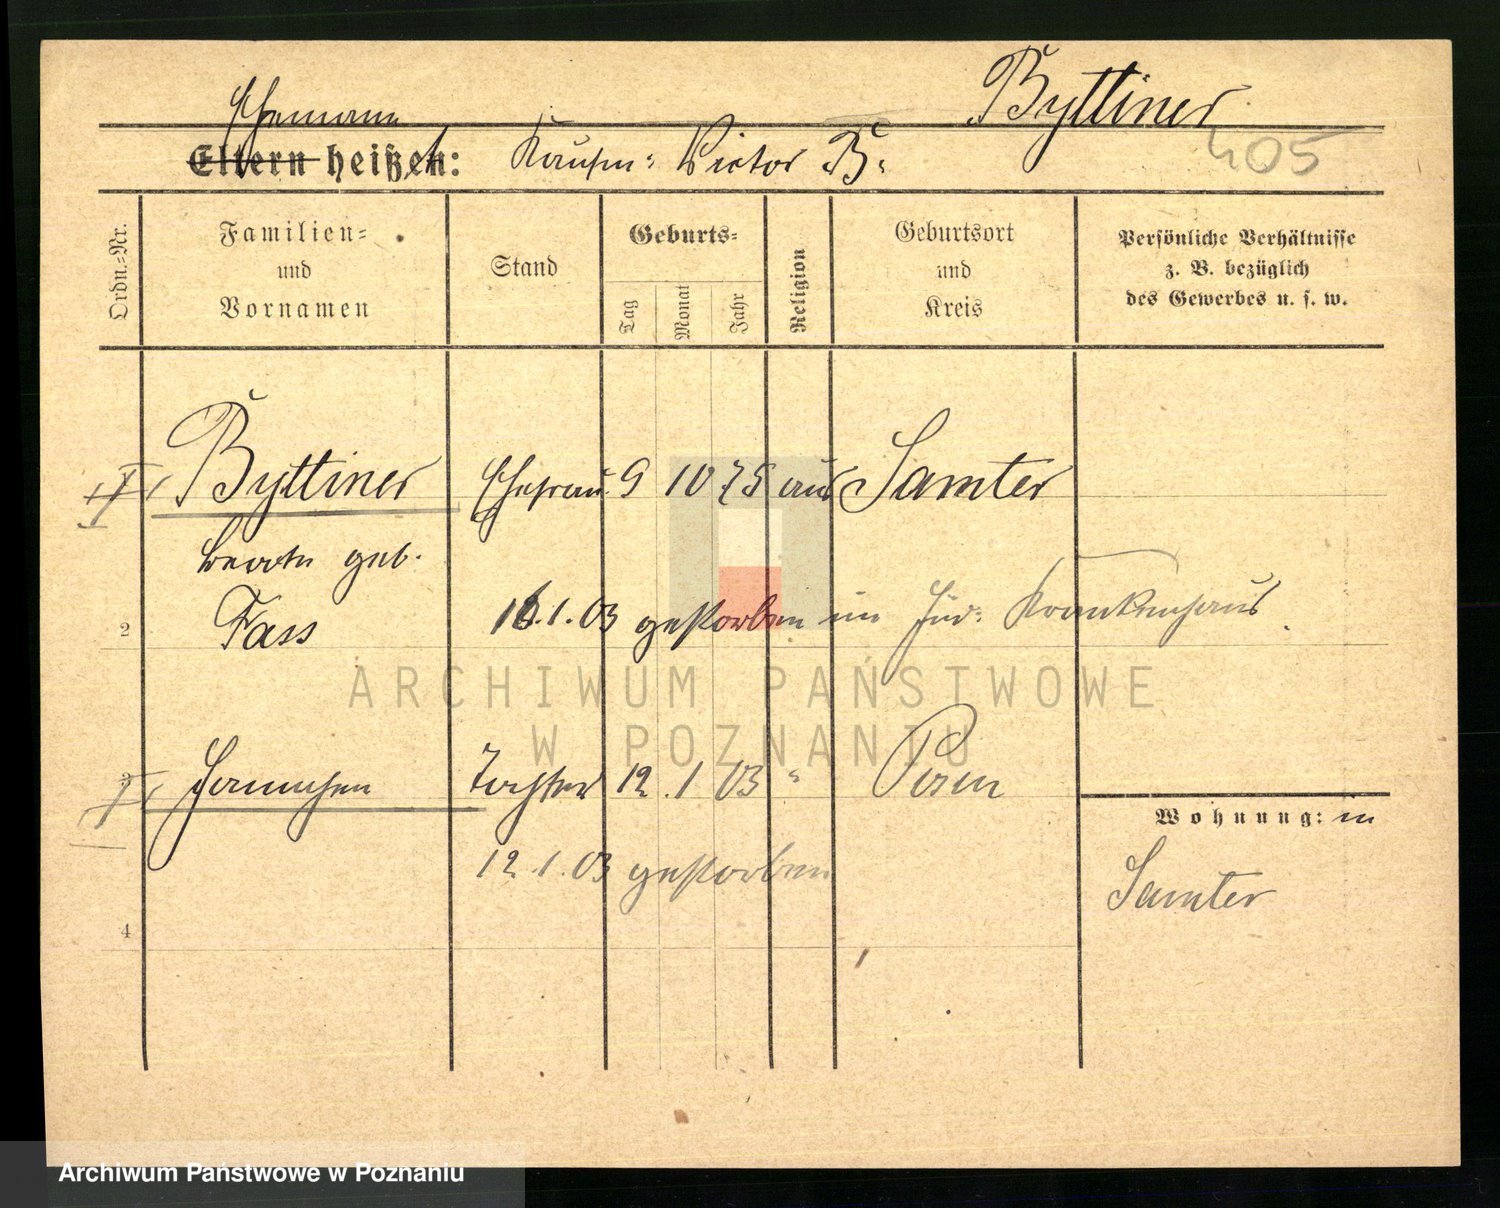 Byttiner
Ehemann
Eltern heißet: Kaufm: Victor B.
405
Ordn.=Nr.
Familien=
und
Vornamen
Stand
Geburts=
Tag
Monat
Jahr
Religion
Geburtsort
und
Kreis
Persönliche Verhältnisse
z. B. bezüglich
des Gewerbes u. s. w.
Byttiner Ehefrau 9 10 75 Samter
geb.
2
Fass
16.1.03 gestorben im Jüd: Krankenhaus
3
Tochter 12.1 03 " Posen
12.1.03 gestorben
Wohnung: in
Samter
4
ARCHIWUM PAŃSTWOWE
W POZNANIU
Archiwum Państwowe w Poznaniu